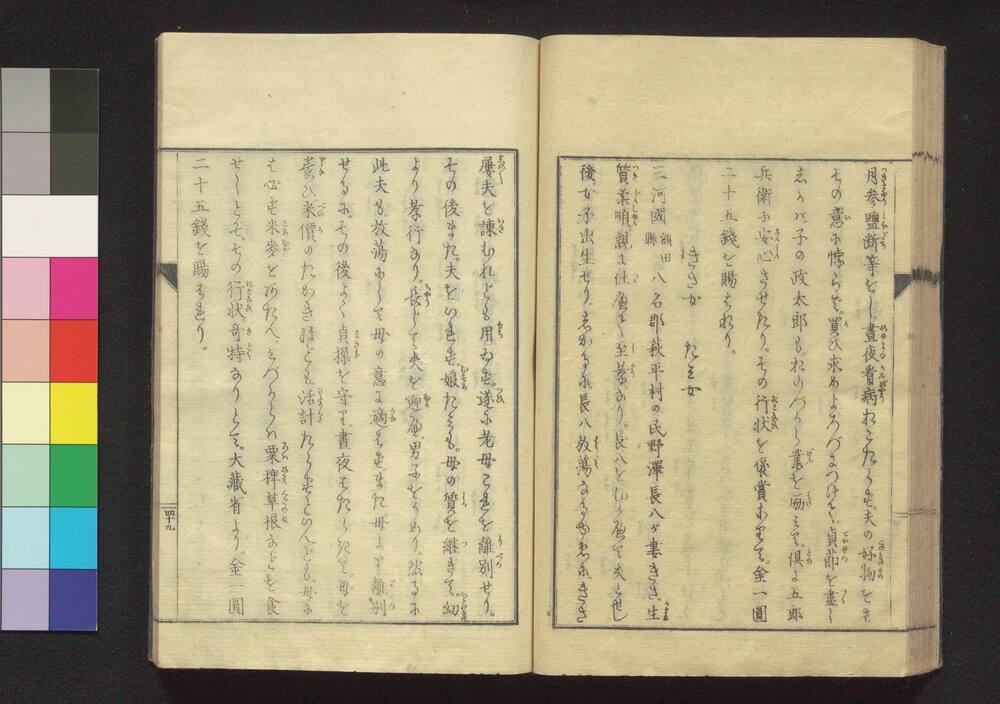 月参鹽断等をし。晝夜看病おこたらず。夫の好物をば
その意に悖らず。買ひ求めよろづにつけて。貞節を盡し
しかバ。子の政太郎も。おのづから業を勵ミて。倶に五郎
兵衛に安心させたり。その行状を褒賞ありて。金一圓
二十五錢を賜はれり。
きさ女 たミ女
三河國額田縣八名郡萩平村の民野澤長八ガ妻きさ。生
質柔順。親に仕へて至孝なり。長八をむかへて夫と世し
後。女子出生せり。しかるに長八放蕩なるゆゑに。きさ
屢夫を諌むれども用ゐず。遂に老母これを離別せり。
その後また。夫をいれず。娘たミも。母の質を継ぎて。幼
より孝行なり。長じて夫を迎へ。男子をうめり。然るに
此夫も放蕩にして母の意に適はず。また母より離別
せるに。その後よく貞操を守り。晝夜はたらきて。母を
養ひ。米價のたかきほども。活計たらずといへども。母に
は必ず米麥をあたへ。ミづからハ粟稗草根などを食
せしとぞ。その行状。奇特なりとて。大藏省より。金一圓
二十五錢を賜はれり。
四十九